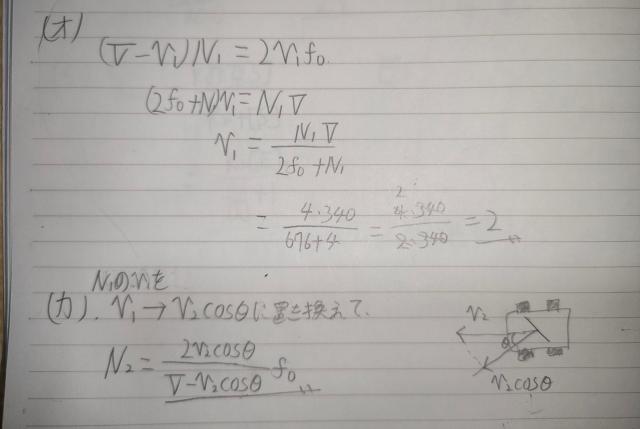 (オ)
(V-v₁)N₁=2v₁f₀.
(2f₀+N₁)v₁=N₁V
v₁=N₁V/(2f₀+N₁)
=4·340/(676+4)=4·340/(2·340)=2
2
N₁のv₁を
(カ). v₁→v₂cosθに置き換えて.
N₂=2v₂cosθ/(V-v₂cosθ) f₀
v₂
θ
v₂cosθ